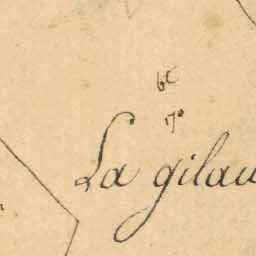 6e
17°
La gilau